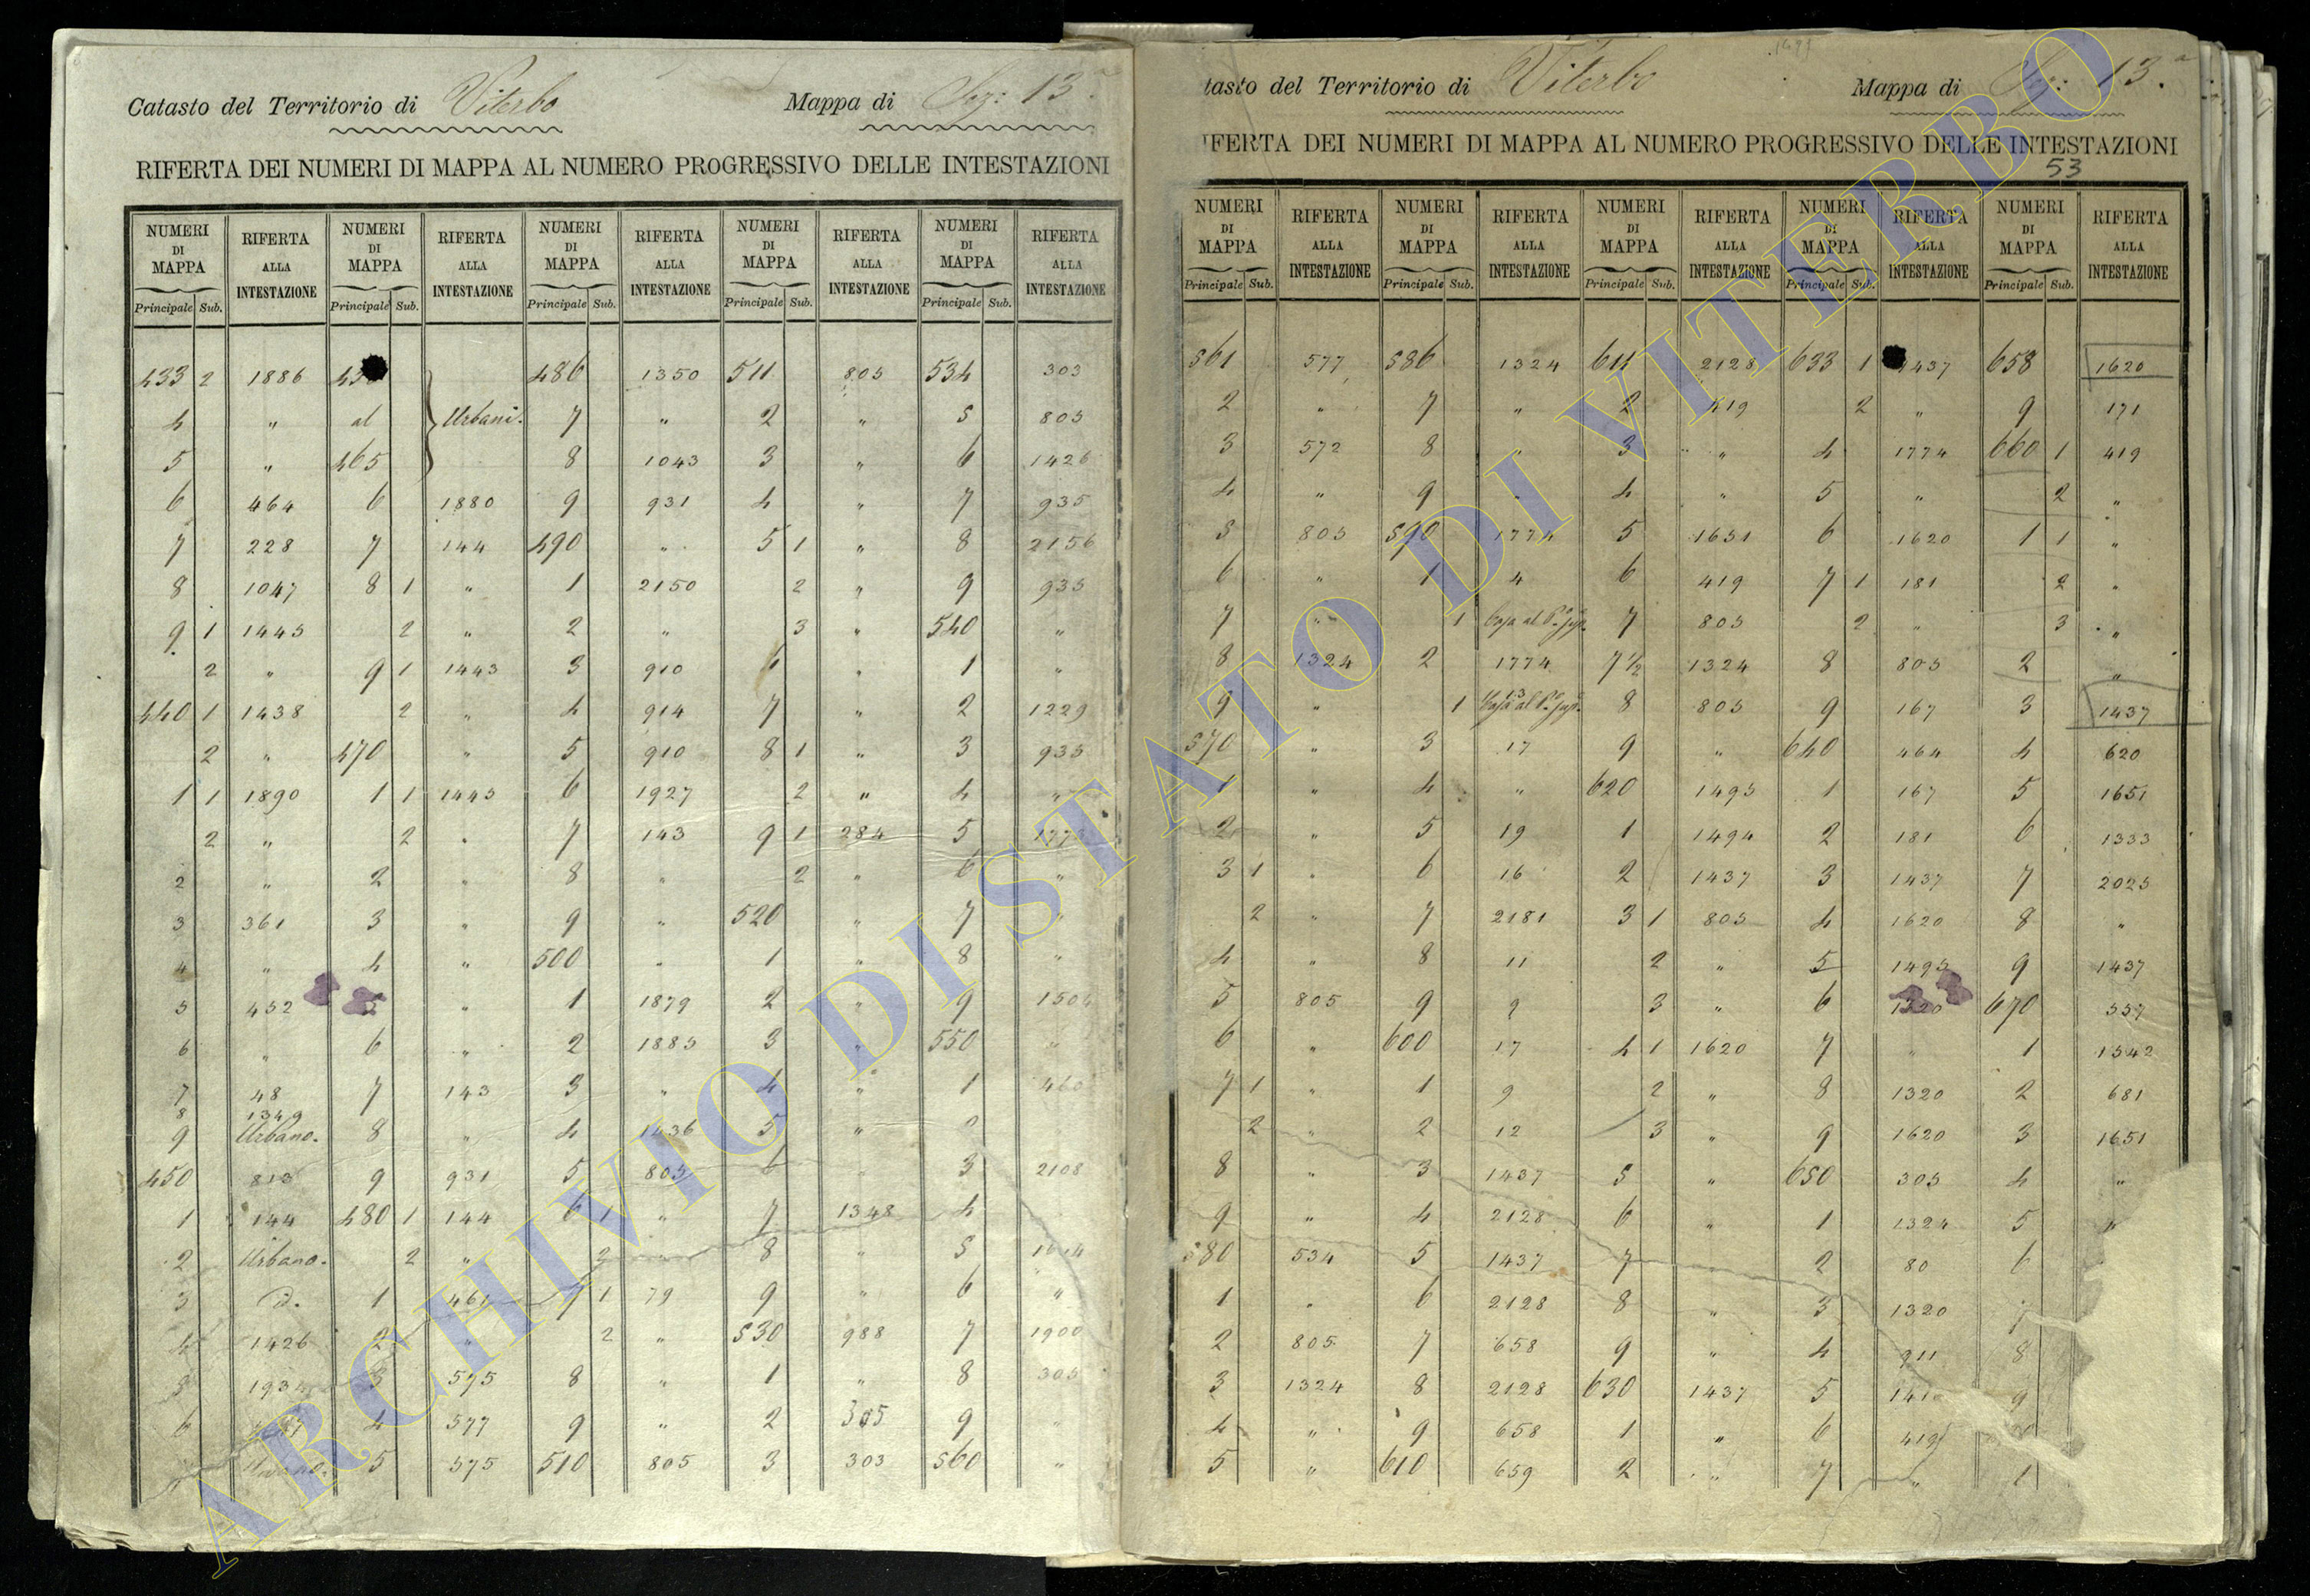 Catasto del Territorio di Viterbo Mappa di Sez: 13.ª
RIFERTA DEI NUMERI DI MAPPA AL NUMERO PROGRESSIVO DELLE INTESTAZIONI
NUMERI DI MAPPA RIFERTA ALLA INTESTAZIONE NUMERI DI MAPPA RIFERTA ALLA INTESTAZIONE NUMERI DI MAPPA RIFERTA ALLA INTESTAZIONE NUMERI DI MAPPA RIFERTA ALLA INTESTAZIONE NUMERI DI MAPPA RIFERTA ALLA INTESTAZIONE
Principale Sub. Principale Sub. Principale Sub. Principale Sub. Principale Sub.
433 2 1886 486 1350 511 805 534 303
4 „ al Urbani. 7 „ 2 „ 5 805
5 „ 465 8 1043 3 „ 6 1426
6 464 6 1880 9 931 4 „ 7 935
7 228 7 144 490 „ 5 1 „ 8 2156
8 1047 8 1 „ 1 2150 2 „ 9 935
9 1 1445 2 „ 2 „ 3 „ 540 „
2 „ 9 1 1443 3 910 6 „ 1 „
440 1 1438 2 „ 4 914 7 „ 2 1229
2 „ 470 „ 5 910 8 1 „ 3 935
1 1 1890 1 1 1445 6 1927 2 „ 4 „
2 „ 2 „ 7 143 9 1 284 5
2 „ 2 „ 8 „ 2 „ 6 „
3 361 3 „ 9 „ 520 „ 7 „
4 „ 4 „ 500 „ 1 „ 8 „
5 452 „ 1 1879 2 „ 9
6 „ 6 „ 2 1885 3 „ 550 „
7 48 7 143 3 „ 4 „ 1 460
8 1349
9 Urbano. 8 „ 4 1436 5 „
450 813 9 931 5 805 6 „ 3 2108
1 144 480 1 144 6 1 „ 7 1348 4
2 Urbano. 2 „ 2 „ 8 „ 5
3 d. 1 7 1 79 9 „ 6 „
4 1426 2 „ 2 „ 530 988 7 1900
5 3 575 8 „ 1 „ 8 305
6 4 577 9 „ 2 305 9 „
5 575 510 805 3 303 560 „
tasto del Territorio di Viterbo Mappa di Sez: 13.ª
FERTA DEI NUMERI DI MAPPA AL NUMERO PROGRESSIVO DELLE INTESTAZIONI
53
NUMERI DI MAPPA RIFERTA ALLA INTESTAZIONE NUMERI DI MAPPA RIFERTA ALLA INTESTAZIONE NUMERI DI MAPPA RIFERTA ALLA INTESTAZIONE NUMERI DI MAPPA RIFERTA ALLA INTESTAZIONE NUMERI DI MAPPA RIFERTA ALLA INTESTAZIONE
Principale Sub. Principale Sub. Principale Sub. Principale Sub. Principale Sub.
561 577 586 1324 611 2128 633 1 1437 658 1620
2 „ 7 „ 2 419 2 „ 9 171
3 572 8 „ 3 „ 4 1774 660 1 419
4 „ 9 „ 4 „ 5 „ 2 „
5 805 590 1774 5 1651 6 1620 1 1 „
6 „ 1 4 6 419 7 1 181 2 „
7 „ 1 Casa al 7 805 2 „ 3 „
8 1324 2 1774 7½ 1324 8 805 2 „
9 „ 1 Casa al 8 805 9 167 3 1437
570 „ 3 17 9 „ 640 464 4 620
1 „ 4 „ 620 1495 1 167 5 1651
2 „ 5 19 1 1494 2 181 6 1333
3 1 „ 6 16 2 1437 3 1437 7 2025
2 „ 7 2181 3 1 805 4 1620 8 „
4 „ 8 11 2 „ 5 1495 9 1437
5 805 9 9 3 „ 6 1320 670 557
6 „ 600 17 4 1 1620 7 „ 1 1542
7 1 „ 1 9 2 „ 8 1320 2 681
2 „ 2 12 3 „ 9 1620 3 1651
8 „ 3 1437 5 „ 650 305 4 „
9 „ 4 2128 6 „ 1 1324 5 „
580 534 5 1437 7 2 80 6
1 „ 6 2128 8 „ 3 1320 7
2 805 7 658 9 „ 4 911 8
3 1324 8 2128 630 1437 5 9
4 „ 9 658 1 „ 6 419
5 „ 610 659 2 „ 7 „ 1
ARCHIVIO DI STATO DI VITERBO